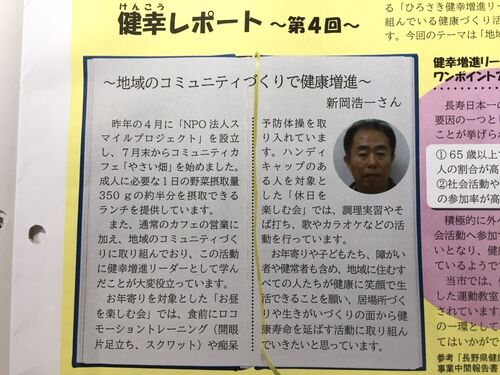 けんこう
健幸レポート ～第４回～
～地域のコミュニティづくりで健康増進～
新岡浩一さん
昨年の４月に「NPO 法人ス
マイルプロジェクト」を設立
し、７月末からコミュニティカ
フェ「やさい畑」を始めました。
成人に必要な１日の野菜摂取量
350ｇの約半分を摂取できる
ランチを提供しています。
また、通常のカフェの営業に
加え、地域のコミュニティづく
りに取り組んでおり、この活動
に健幸増進リーダーとして学ん
だことが大変役立っています。
お年寄りを対象とした「お昼
を楽しむ会」では、食前にロコ
モーショントレーニング（開眼
片足立ち、スクワット）や痴呆
予防体操を取
り入れていま
す。ハンディ
キャップのあ
る人を対象と
した「休日を
楽しむ会」では、調理実習やそ
ば打ち、歌やカラオケなどの活
動を行っています。
お年寄りや子どもたち、障がい
者や健常者も含め、地域に住むす
べての人たちが健康に笑顔で生
活できることを願い、居場所づく
りや生きがいづくりの面から健
康寿命を延ばす活動に取り組ん
でいきたいと思っています。
る「ひろさき健幸増
組んでいる健康づくり
す。今回のテーマは「地域
健幸増進リー
ワンポイント
長寿日本一の
要因の一つと
ことが挙げられ
①65 歳以上で
人の割合が高
②社会活動や
の参加率が高
積極的に外
会活動へ参加
いとなり、健康
ているようです
当市では、健
した運動教室
されています
の一環として
てはいかがで
参考「長野県健康
事業中間報告書